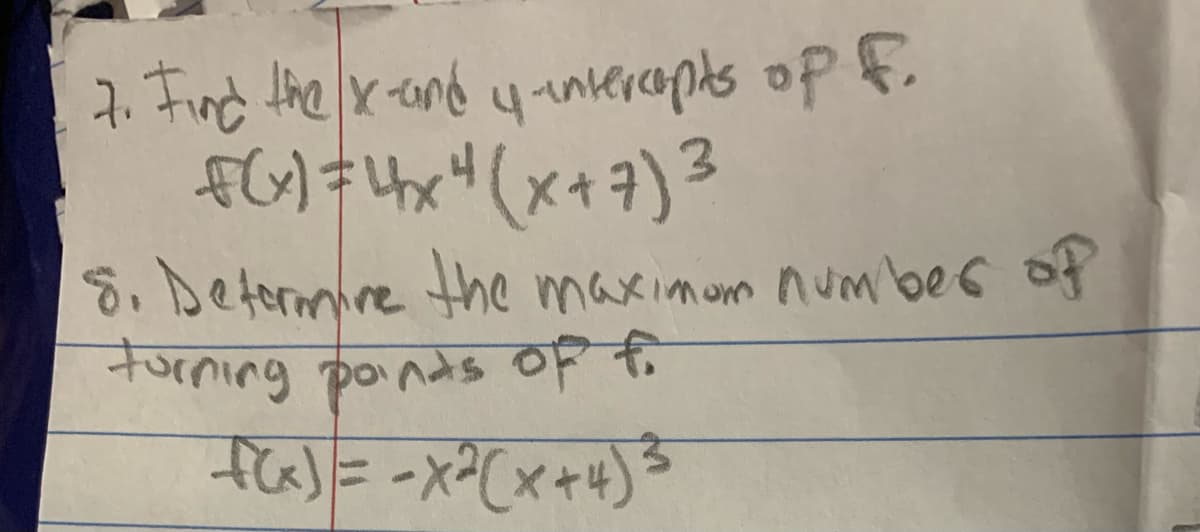 7. Find the x-and y-intercepts of f.
f(x)=4x⁴(x+7)³
8. Determine the maximum number of
turning points of f.
f(x)=-x²(x+4)³